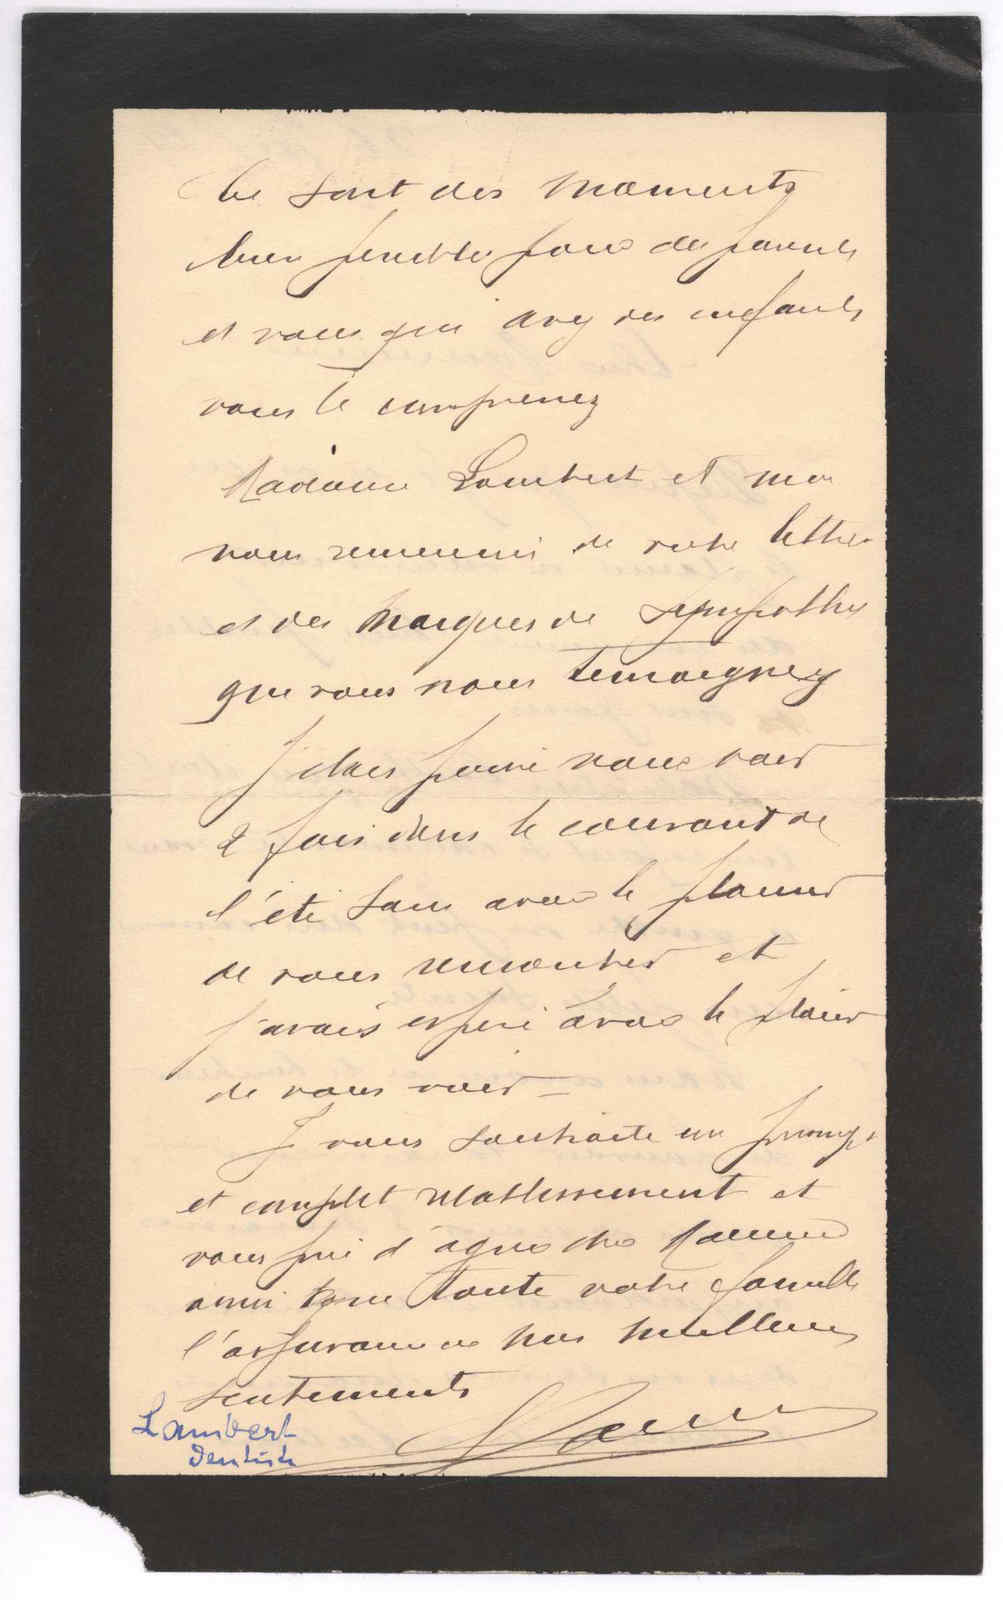 Ce sont des moments
bien penibles pour des parents
et vous qui avez des enfants
vous le comprenez
Madame Lambert et moi
vous remercions de votre lettre
et des marques de sympathie
que vous nous temoignez
J'étais passé vous voir
2 fois dans le courant de
l'été sans avoir le plaisir
de vous rencontrer et
j'avais esperé avoir le plaisir
de vous voir =
Je vous souhaite un prompt
et complet retablissement et
vous prie d'agréer cher Monsieur
ainsi que toute votre famille
l'assurance de nos meilleurs
sentiments
Lambert
dentiste